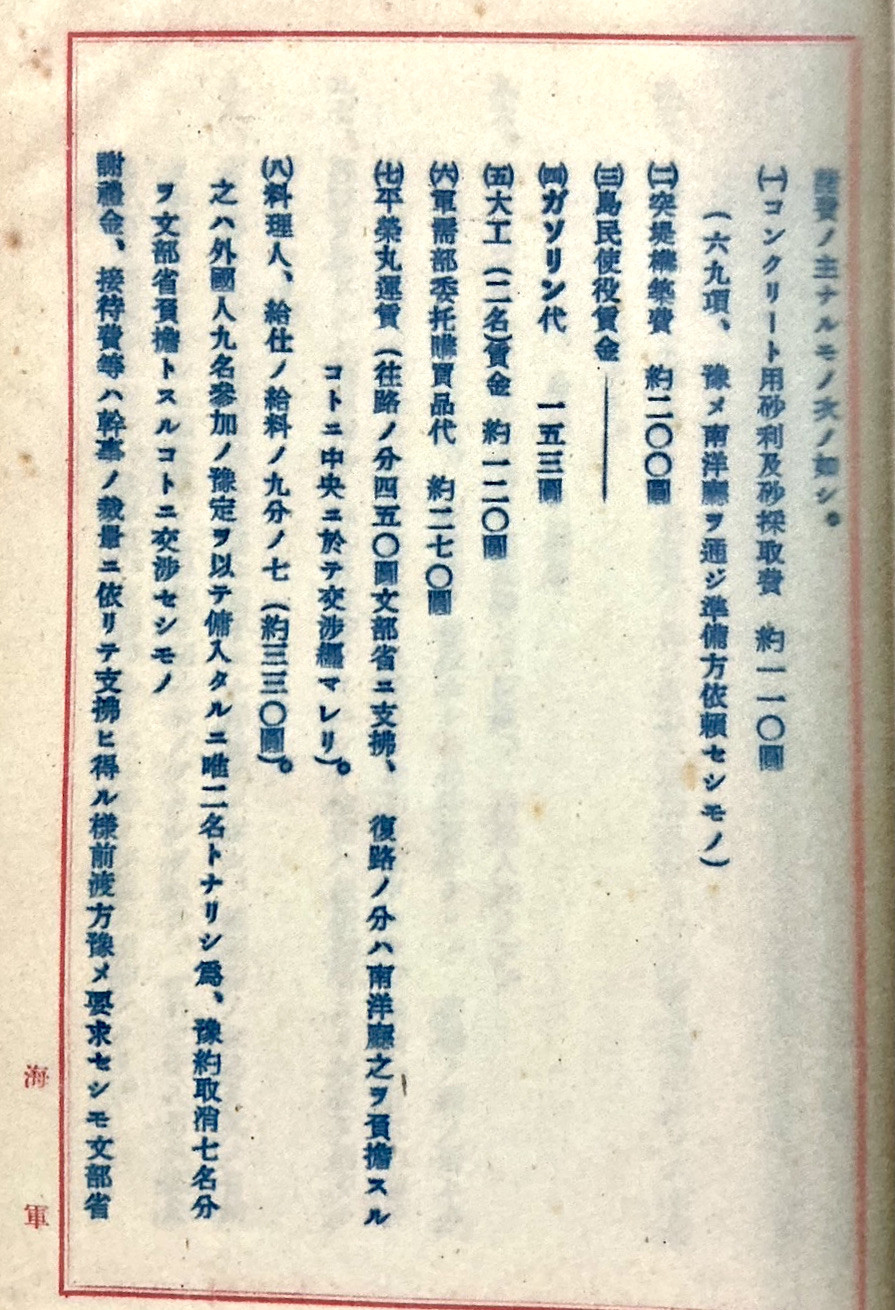 諸費ノ主ナルモノ次ノ如シ。
㈠コンクリート用砂利及砂採取費　約一一〇圓
（六九項、豫メ南洋廳ヲ通ジ準備方依頼セシモノ）
㈡突堤構築費　約二〇〇圓
㈢島民使役賃金　―――
㈣ガソリン代　一五三圓
㈤大工（二名）賃金　約一二〇圓
㈥軍需部委托購買品代　約二七〇圓
㈦平榮丸運賃（往路ノ分四五〇圓文部省ニ支拂、復路ノ分ハ南洋廳之ヲ負擔スル
コトニ中央ニ於テ交渉纒マレリ）。
㈧料理人、給仕ノ給料ノ九分ノ七（約三三〇圓）。
之ハ外國人九名參加ノ豫定ヲ以テ傭入タルニ唯二名トナリシ爲、豫約取消七名分
ヲ文部省負擔トスルコトニ交渉セシモノ
謝禮金、接待費等ハ幹事ノ裁量ニ依リテ支拂ヒ得ル樣前渡方豫メ要求セシモ文部省
海軍